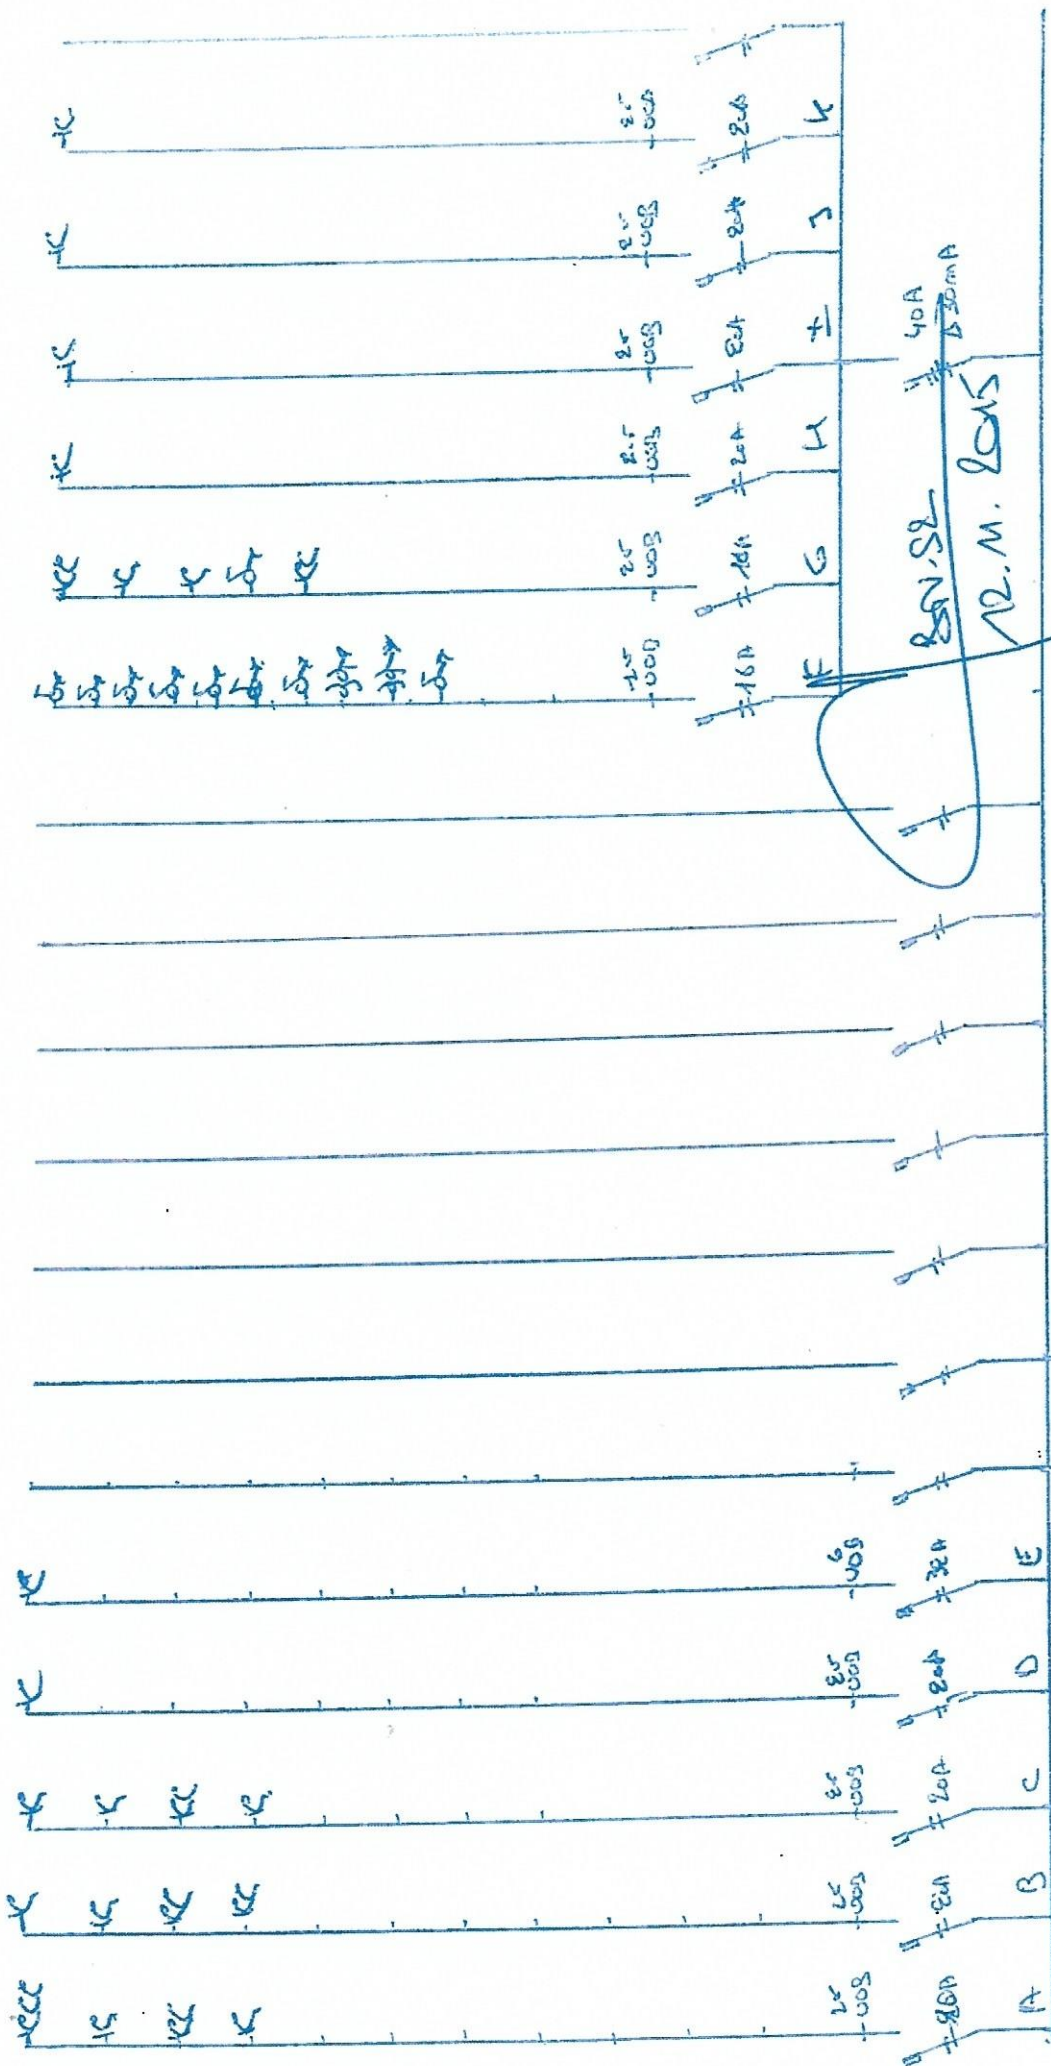 2.5
VOB
20A
K
2.5
VOB
20A
J
2.5
VOB
20A
I
2.5
VOB
20A
H
2.5
VOB
16A
G
VOB
16A
F
40A
Δ 30mA
12. 11. 2015
6
VOB
32A
E
2.5
VOB
20A
D
2.5
VOB
20A
C
2.5
VOB
20A
B
2.5
VOB
20A
A